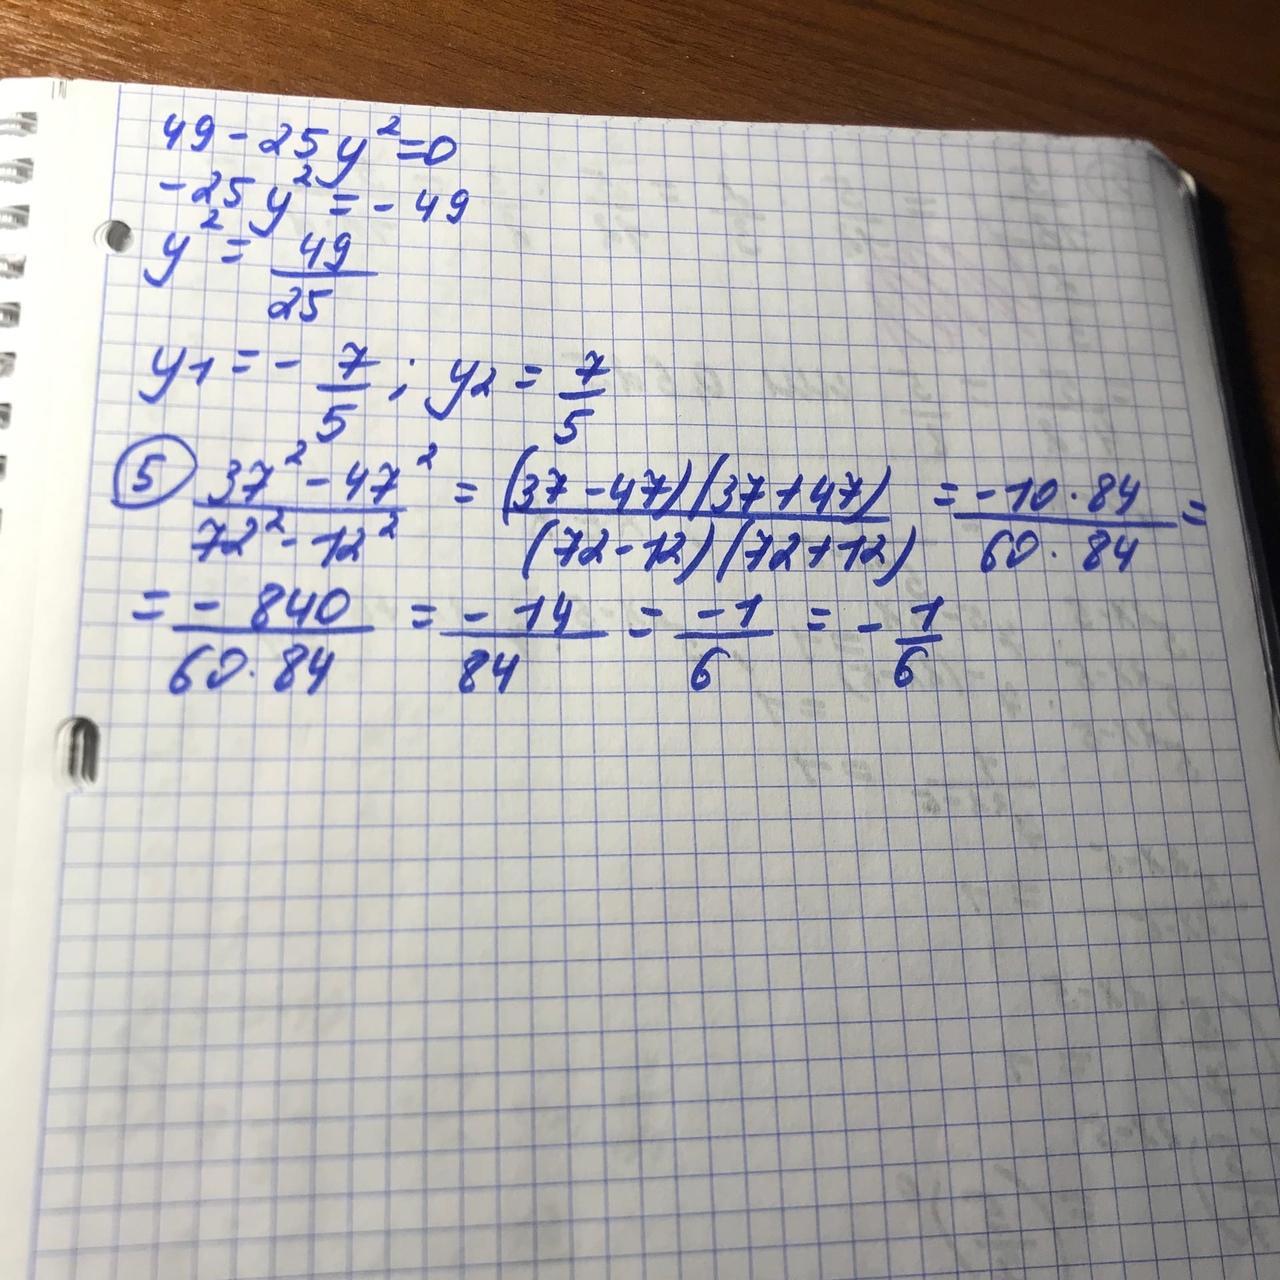 49-25y²=0
-25y²=-49
y²= 49/25
y1=-7/5; y2=7/5
5 37²-47²/72²-12² = (37-47)(37+47)/(72-12)(72+12) = -10·84/60·84 =
= -840/60·84 = -14/84 = -1/6 = -1/6